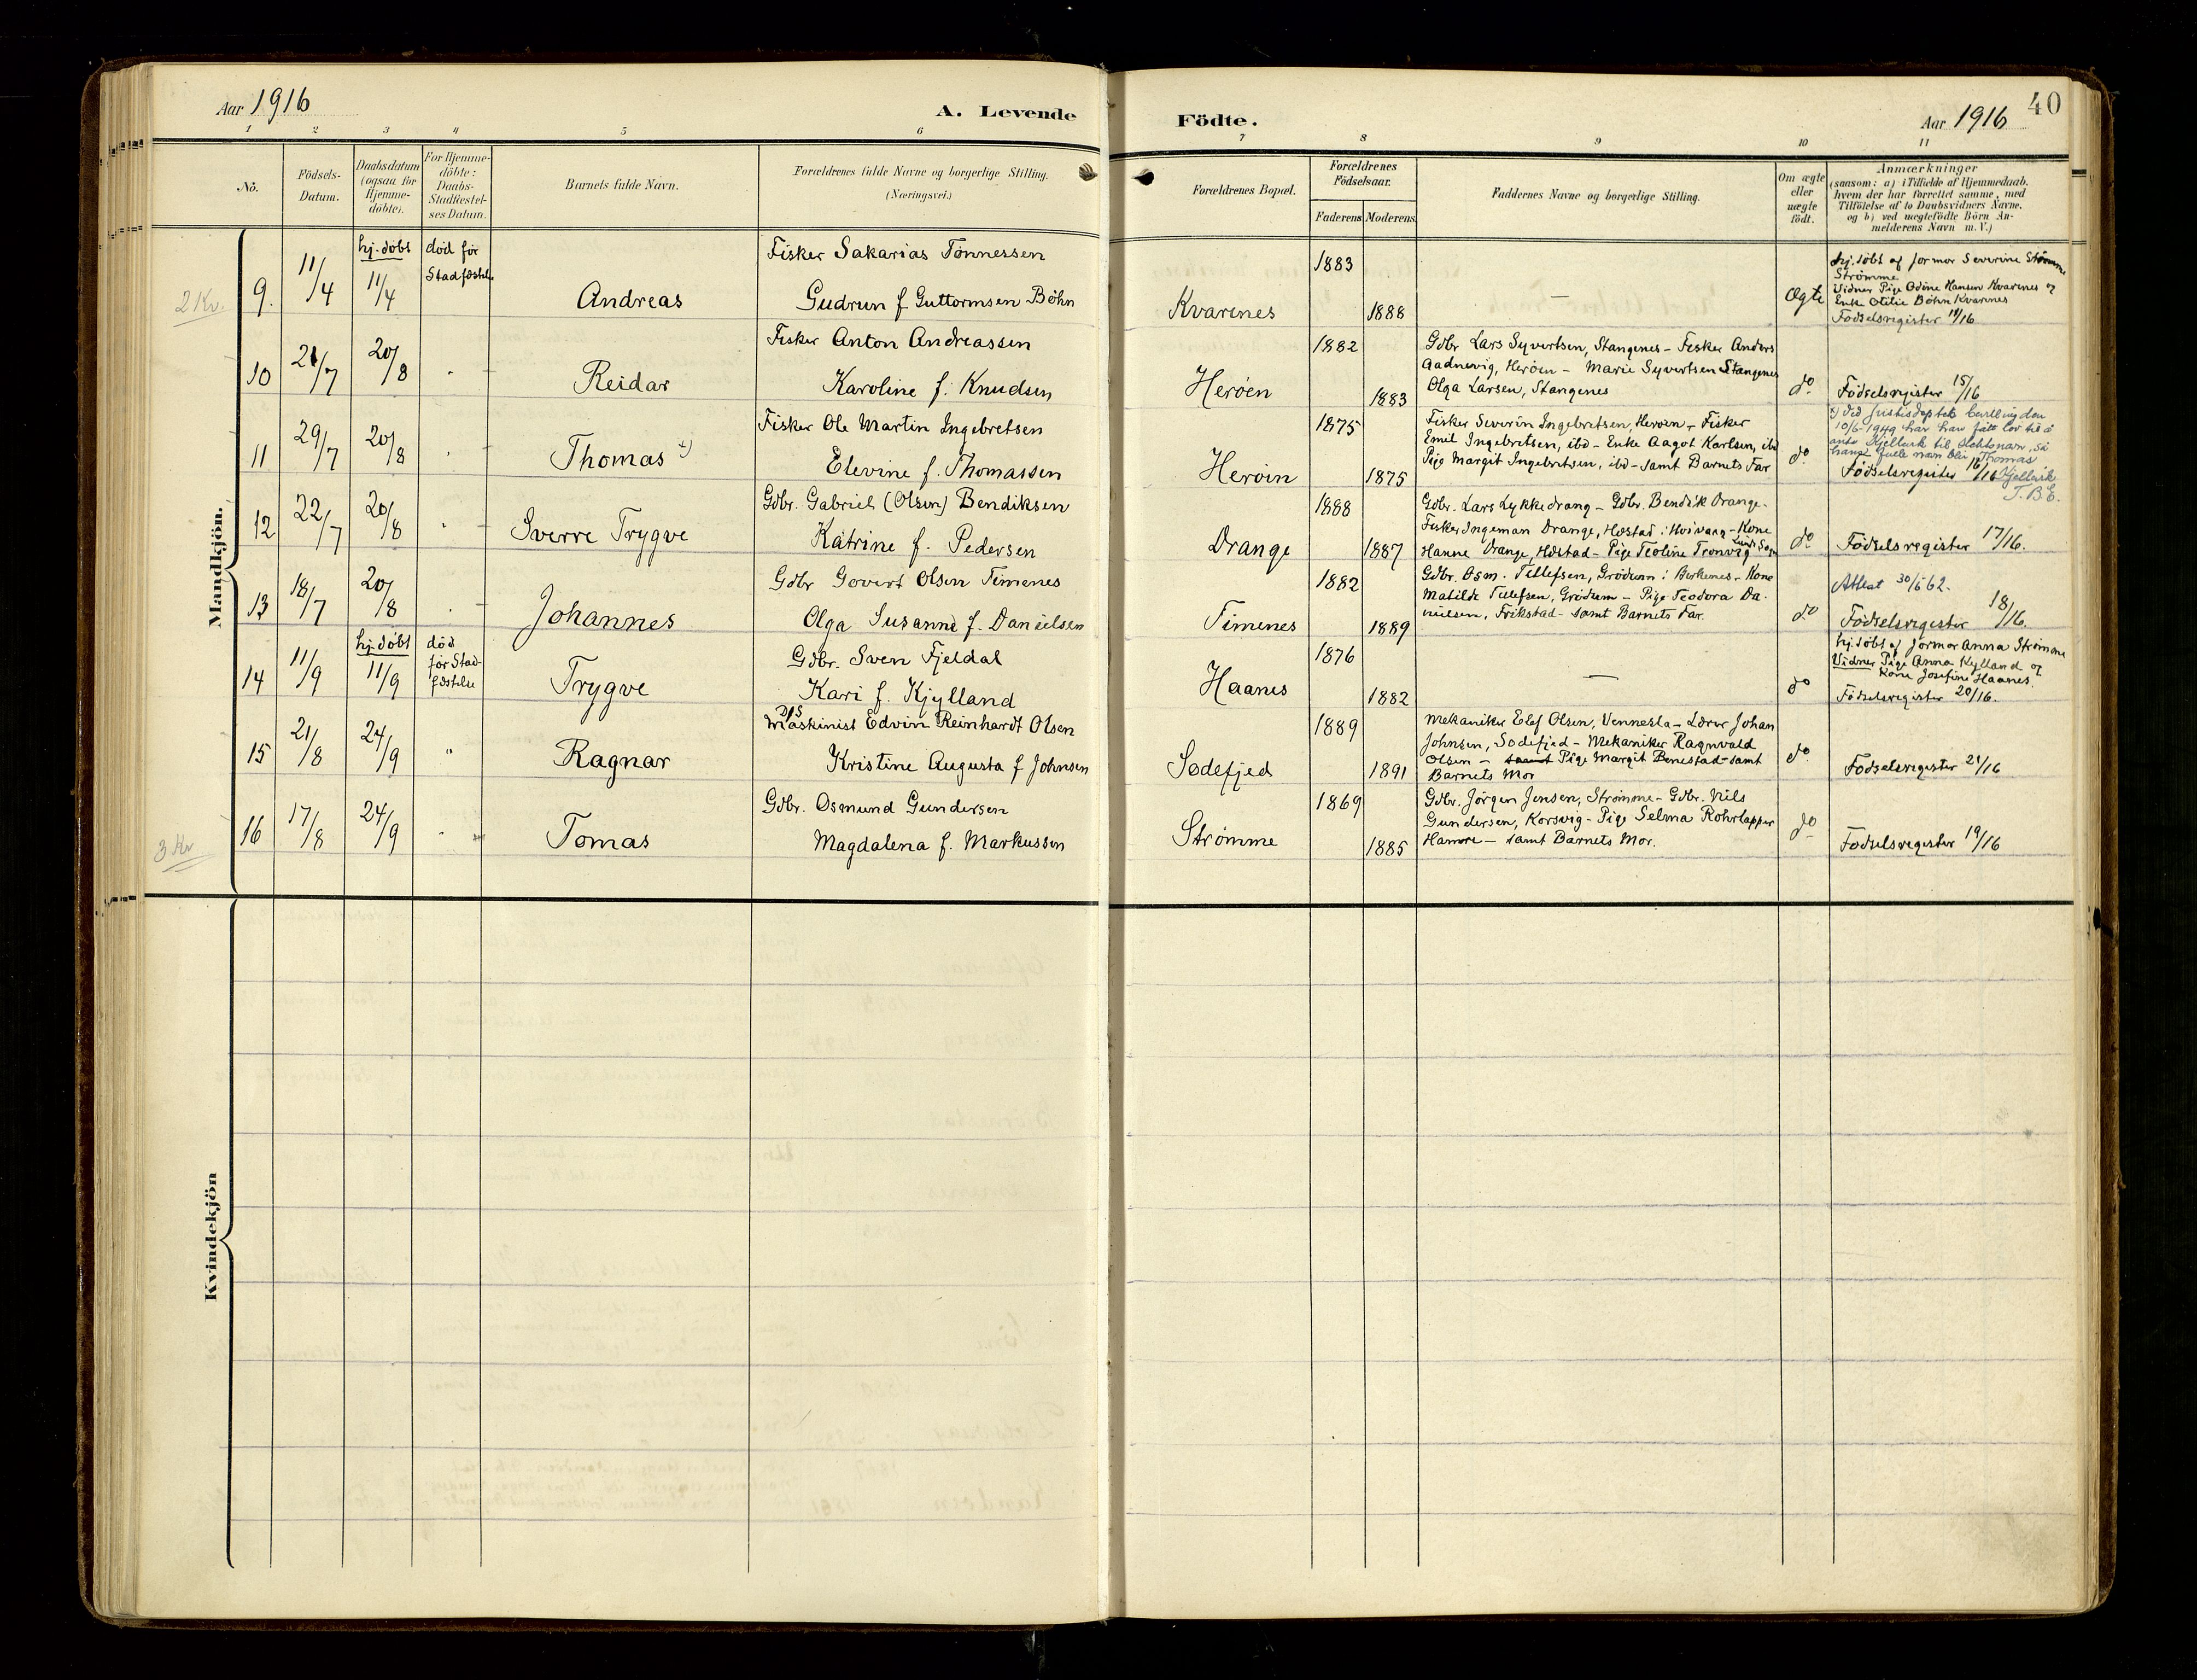 Aar 1916
A. Levende
Födte.
Aar 1916
40
1 2 3 4 5 6 7 8 9 10 11
Nö.
Födsels-
Datum.
Daabsdatum
(ogsaa for
Hjemme-
döbte).
For Hjemme-
döbte:
Daabs-
Stadfæstel-
ses Datum.
Barnets fulde Navn.
Forældrenes fulde Navne og borgerlige Stilling.
(Næringsvei.)
Forældrenes Bopæl.
Forældrenes
Födselsaar.
Faderens Moderens
Faddernes Navne og borgerlige Stilling.
Om ægte
eller
uægte
födt.
Anmærkninger
(saasom: a) i Tilfælde af Hjemmedaab.
hvem der har forrettet samme, med
Tilföielse af to Daabsvidners Navne.
og b) ved uægtefödte Börn An-
melderens Navn m. V.)
Mandkjön.
2 Kr.
9.
11/4
hj. döbt
11/4
död før
Stadfæstelse
Andreas
Fisker Sakarias Tønnessen
Gudrun f. Guttormsen Böhn
Kvarenes
1883
1888
—
Ægte
hj. döbt af Jormor Severine Strømme
Strømme
Vidner Pige Odine Hansen Kvarenes og
Enke Otilie Böhn Kvarenes
Födselsregister 14/16
10
21/7
20/8
Reidar
Fisker Anton Andreassen
Karoline f. Knudsen
Herøen
1882
1883
Gdbr Lars Syvertsen, Stangenes - Fisker Anders
Aadnevig, Herøen - Marie Syvertsen Stangenes
Olga Larsen, Stangenes
do
Födselsregister 15/16
11
29/7
20/8
Thomas x)
Fisker Ole Martin Ingebretsen
Elevine f. Thomassen
Herøin
1875
1875
Fisker Severin Ingebretsen, Herøen - Fisker
Emil Ingebretsen, ibd - Enke Aagot Karlsen, ibd
Pige Margit Ingebretsen, ibd - samt Barnets Far
do
x) Ved Justisdeptets bevilling den
10/6-1949 har han fått lov til å
anta Kjellevik til slektsnavn, så
hans fulle navn blir Thomas
Kjellevik
T.B.E.
Födselsregister 16/16
12
22/7
20/8
Sverre Trygve
Gdbr. Gabriel (Olsen) Bendiksen
Katrine f. Pedersen
Drange
1888
1887
Gdbr. Lars Lykkedrang - Gdbr. Bendik Drange -
Fisker Ingeman Drange, Høstad - Kone
Hanne Drange, Høstad - Pige Teoline Tronvig
do
Födselsregister 17/16.
13
18/7
20/8
Johannes
Gdbr Govert Olsen Timenes
Olga Susanne f. Danielsen
Timenes
1882
1889
Gdbr. Osm. Tellefsen, Grödum i Birkenes - Kone
Matilde Tellefsen, Grödum - Pige Teodora Da-
nielsen, Frikstad - samt Barnets Far.
do
Attest 30/1 62.
Födselsregister 18/16.
14
11/9
hj. döbt
11/9
död
før Stad-
fæstelse
Trygve
Gdbr. Sven Fjeldal
Kari f. Kjylland
Haanes
1876
1882
—
do
hj. döbt af Jormor Anna Strømme
Vidner Pige Anna Kylland og
Kone Josefine Haanes
Födselsregister 20/16.
15
21/8
24/9
"
Ragnar
D/S
Maskinist Edvin Reinhardt Olsen
Kristine Augusta f Johnsen
Sodefjed
1889
1891
Mekaniker Elef Olsen, Vennesla - Lærer Johan
Johnsen, Sodefjed - Mekaniker Ragnvald
Olsen - samt Pige Margit Benestad - samt
Barnets Mor
do
Födselsregister 21/16
3 Kr
16
17/8
24/9
"
Tomas
Gdbr. Osmund Gundersen
Magdalena f. Markussen
Strømme
1869
1885
Gdbr. Jörgen Jensen, Strømme - Gdbr. Nils
Gundersen, Korsvig - Pige Selma Rohrlapper
Hamre - samt Barnets Mor.
do
Födselsregister 19/16
Kvindekjön